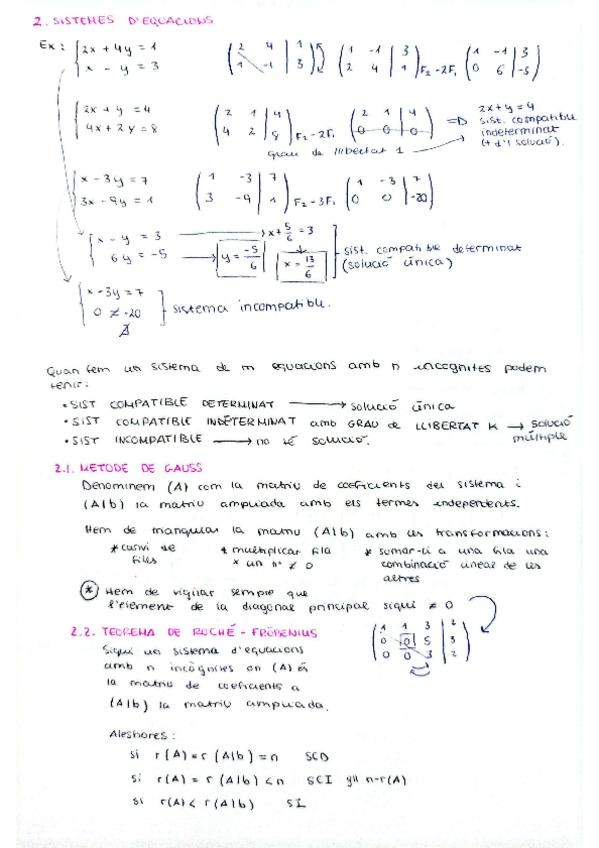 2. SISTEMES D'EQUACIONS
Ex: { 2x + 4y = 1 ( 2 4 | 1 ) ( 1 -1 | 3 ) ( 1 -1 | 3 )
x - y = 3 ( 1 -1 | 3 ) ( 2 4 | 1 ) F₂-2F₁ ( 0 6 | -5 )
{ 2x + y = 4 ( 2 1 | 4 ) ( 2 1 | 4 ) => 2x+y = 4
4x + 2y = 8 ( 4 2 | 8 ) F₂-2F₁ ( 0 0 | 0 ) sist. compatible
indeterminat
Grau de llibertat 1 (+ d'1 solució).
{ x - 3y = 7 ( 1 -3 | 7 ) ( 1 -3 | 7 )
3x - 9y = 1 ( 3 -9 | 1 ) F₂-3F₁ ( 0 0 | -20 )
{ x - y = 3 → x + 5/6 = 3
6y = -5 → y = -5/6 x = 13/6 ] sist. compatible determinat
(solució única)
{ x-3y = 7
0 ≠ -20 ] sistema incompatible.
∄
Quan fem un sistema de m equacions amb n incògnites podem
tenir:
• SIST COMPATIBLE DETERMINAT → solució única
• SIST COMPATIBLE INDETERMINAT amb GRAU de LLIBERTAT K → solució
múltiple
• SIST INCOMPATIBLE → no té solució.
2.1. METODE DE GAUSS
Denominem (A) com la matriu de coeficients del sistema i
(A|b) la matriu ampliada amb els termes independents.
Hem de triangular la matriu (A|b) amb les transformacions:
* canvi de * multiplicar fila * sumar-li a una fila una
files x un nº ≠ 0 combinació lineal de les
altres
* Hem de vigilar sempre que
l'element de la diagonal principal sigui ≠ 0
2.2. TEOREMA DE ROCHÉ - FRÖBENIUS
( 1 1 3 | 2 )
( 0 0 5 | 3 )
( 0 0 3 | 2 )
Sigui un sistema d'equacions
amb n incògnites on (A) és
la matriu de coeficients a
(A|b) la matriu ampliada.
Aleshores:
si r(A) = r(A|b) = n SCD
si r(A) = r(A|b) < n SCI n-r(A)
si r(A) < r(A|b) SI